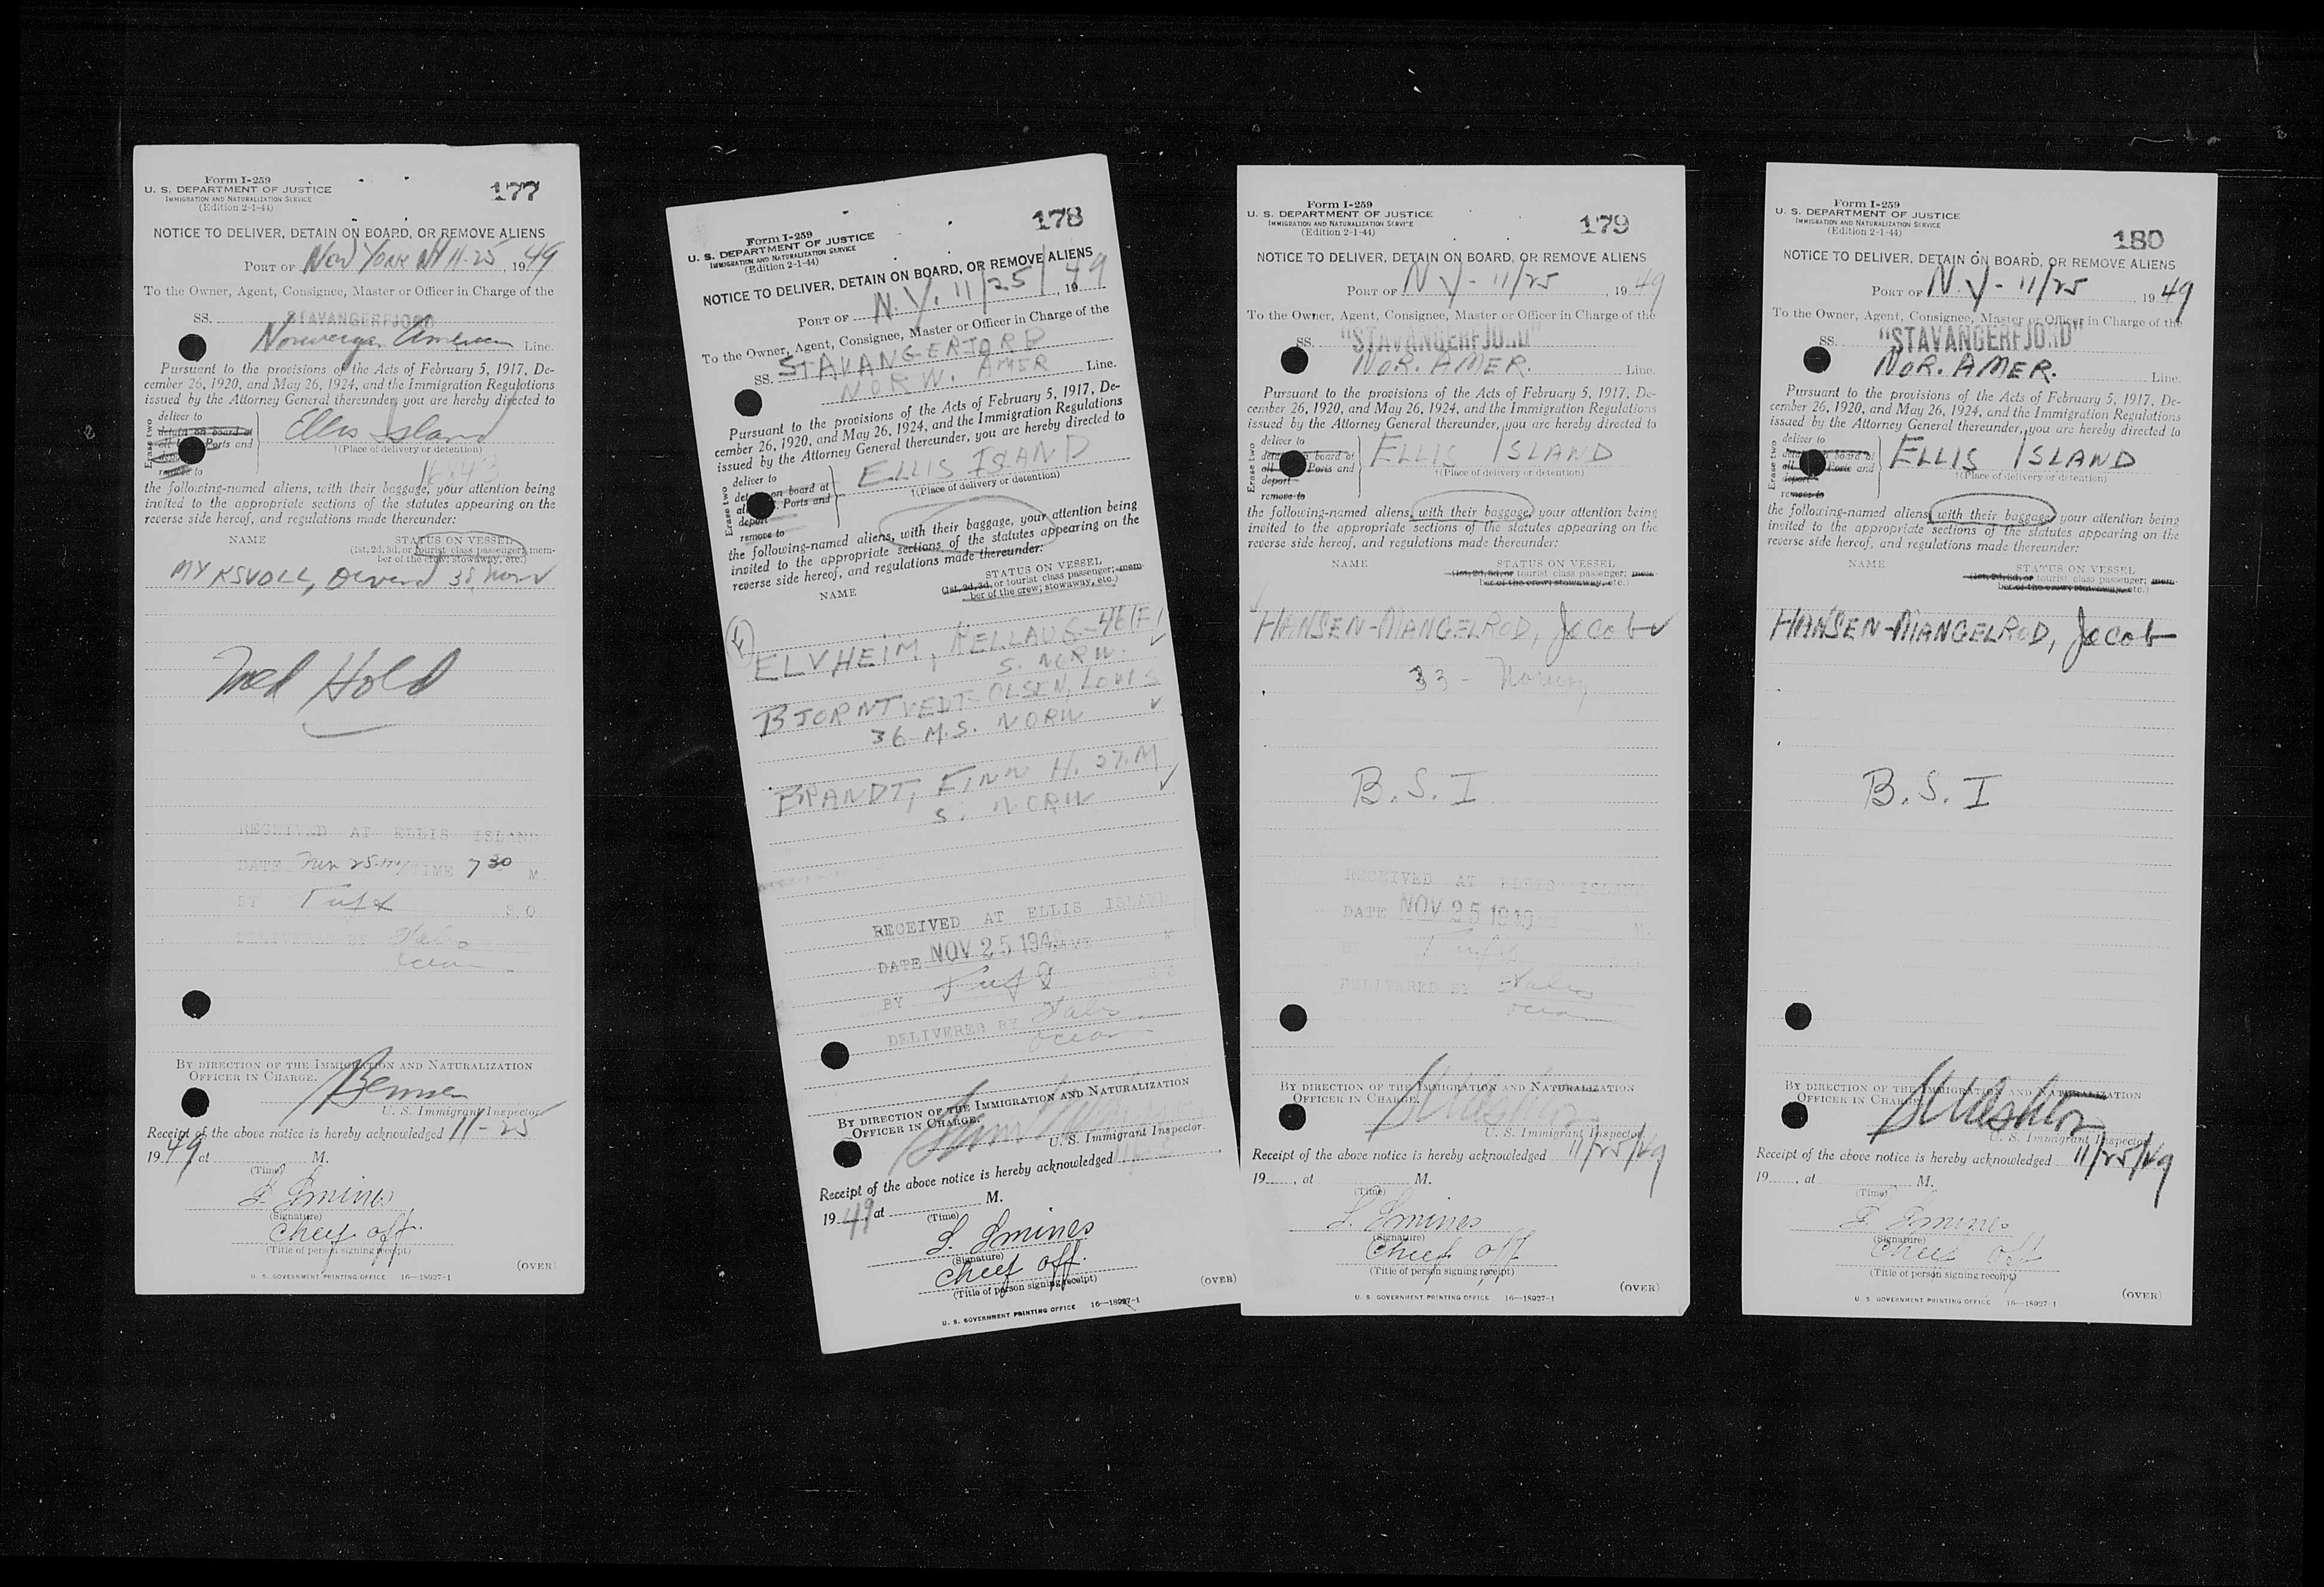 Form I-259
U. S. DEPARTMENT OF JUSTICE
IMMIGRATION AND NATURALIZATION SERVICE
(Edition 2-1-44)
177
NOTICE TO DELIVER, DETAIN ON BOARD, OR REMOVE ALIENS
PORT OF New York NY 11-25, 1949
To the Owner, Agent, Consignee, Master or Officer in Charge of the
SS. STAVANGERFJORD
Line.
Pursuant to the provisions of the Acts of February 5, 1917, De-
cember 26, 1920, and May 26, 1924, and the Immigration Regulations
issued by the Attorney General thereunder, you are hereby directed to
Erase two
deliver to
detain on board at
all Ports and
remove to
Ellis Island
†(Place of delivery or detention)
the following-named aliens, with their baggage, your attention being
invited to the appropriate sections of the statutes appearing on the
reverse side hereof, and regulations made thereunder:
NAME STATUS ON VESSEL
(1st, 2d, 3d, or tourist class passenger; mem-
ber of the crew; stowaway, etc.)
MYKSVOLL,
Med Hold
RECEIVED AT ELLIS ISLAND
DATE Nov 25 TIME 7 30 M.
BY S. O.
DELIVERED BY
BY DIRECTION OF THE IMMIGRATION AND NATURALIZATION
OFFICER IN CHARGE.
U. S. Immigrant Inspector.
Receipt of the above notice is hereby acknowledged 11-25
1949 at M.
(Time)
(Signature)
Chief off.
(Title of person signing receipt)
(OVER)
U. S. GOVERNMENT PRINTING OFFICE 16—18927-1
Form I-259
U. S. DEPARTMENT OF JUSTICE
IMMIGRATION AND NATURALIZATION SERVICE
(Edition 2-1-44)
178
NOTICE TO DELIVER, DETAIN ON BOARD, OR REMOVE ALIENS
PORT OF N.Y. 11/25/, 1949
To the Owner, Agent, Consignee, Master or Officer in Charge of the
SS. STAVANGERJORD
NORW. AMER Line.
Pursuant to the provisions of the Acts of February 5, 1917, De-
cember 26, 1920, and May 26, 1924, and the Immigration Regulations
issued by the Attorney General thereunder, you are hereby directed to
Erase two
deliver to
on board at
Ports and
deport
remove to
ELLIS ISLAND
†(Place of delivery or detention)
the following-named aliens, with their baggage, your attention being
invited to the appropriate sections of the statutes appearing on the
reverse side hereof, and regulations made thereunder:
NAME STATUS ON VESSEL
(1st, 2d, 3d, or tourist class passenger; mem-
ber of the crew; stowaway, etc.)
ELVHEIM, HELLAUG-46(F)
S. NORW.
BJORNTVEDT-OLSEN, LOUIS
36-M.S. NORW
BRANDT, FINN H. 27.M
S. NORW
RECEIVED AT ELLIS ISLAND
DATE NOV 25 194 M
BY S. O.
DELIVERED BY
BY DIRECTION OF THE IMMIGRATION AND NATURALIZATION
OFFICER IN CHARGE.
U. S. Immigrant Inspector.
Receipt of the above notice is hereby acknowledged
1949, at M.
(Time)
(Signature)
Chief off.
(Title of person signing receipt)
(OVER)
U. S. GOVERNMENT PRINTING OFFICE 16—18927-1
Form I-259
U. S. DEPARTMENT OF JUSTICE
IMMIGRATION AND NATURALIZATION SERVICE
(Edition 2-1-44)
179
NOTICE TO DELIVER, DETAIN ON BOARD, OR REMOVE ALIENS
PORT OF N Y - 11/25, 1949
To the Owner, Agent, Consignee, Master or Officer in Charge of the
SS. "STAVANGERFJORD"
NOR. AMER. Line.
Pursuant to the provisions of the Acts of February 5, 1917, De-
cember 26, 1920, and May 26, 1924, and the Immigration Regulations
issued by the Attorney General thereunder, you are hereby directed to
Erase two
deliver to
board at
all Ports and
deport
remove to
ELLIS ISLAND
†(Place of delivery or detention)
the following-named aliens, with their baggage, your attention being
invited to the appropriate sections of the statutes appearing on the
reverse side hereof, and regulations made thereunder:
NAME STATUS ON VESSEL
(1st, 2d, 3d, or tourist class passenger; mem-
ber of the crew; stowaway, etc.)
HANSEN-MANGELROD, Jacob
33 - Norway
B.S.I.
RECEIVED AT ELLIS ISLAND
DATE NOV 25 1949 M.
BY
DELIVERED BY
BY DIRECTION OF THE IMMIGRATION AND NATURALIZATION
OFFICER IN CHARGE.
U. S. Immigrant Inspector.
Receipt of the above notice is hereby acknowledged 11/25/49
19, at M.
(Time)
(Signature)
Chief off
(Title of person signing receipt)
(OVER)
U. S. GOVERNMENT PRINTING OFFICE 16—18927-1
Form I-259
U. S. DEPARTMENT OF JUSTICE
IMMIGRATION AND NATURALIZATION SERVICE
(Edition 2-1-44)
180
NOTICE TO DELIVER, DETAIN ON BOARD, OR REMOVE ALIENS
PORT OF N.Y - 11/25, 1949
To the Owner, Agent, Consignee, Master or Officer in Charge of the
SS. "STAVANGERFJORD"
NOR. AMER. Line.
Pursuant to the provisions of the Acts of February 5, 1917, De-
cember 26, 1920, and May 26, 1924, and the Immigration Regulations
issued by the Attorney General thereunder, you are hereby directed to
Erase two
deliver to
board at
all Ports and
deport
remove to
ELLIS ISLAND
†(Place of delivery or detention)
the following-named aliens, with their baggage, your attention being
invited to the appropriate sections of the statutes appearing on the
reverse side hereof, and regulations made thereunder:
NAME STATUS ON VESSEL
(1st, 2d, 3d, or tourist class passenger; mem-
ber of the crew; stowaway, etc.)
HANSEN-MANGELROD, Jacob
B.S.I
BY DIRECTION OF THE IMMIGRATION AND NATURALIZATION
OFFICER IN CHARGE.
U. S. Immigrant Inspector.
Receipt of the above notice is hereby acknowledged 11/25/49
19, at M.
(Time)
(Signature)
Chief off
(Title of person signing receipt)
(OVER)
U. S. GOVERNMENT PRINTING OFFICE 16—18927-1